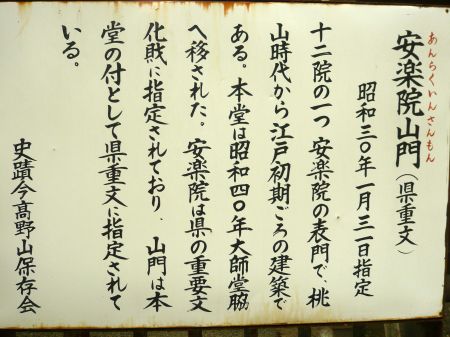 あんらくいんさんもん
安楽院山門（県重文）
昭和三〇年一月三一日指定
十二院の一つ 安楽院の表門で、桃
山時代から江戸初期ごろの建築で
ある。本堂は昭和四〇年大師堂脇
へ移された。安楽院は県の重要文
化財に指定されており、山門は本
堂の付として県重文に指定されて
いる。
史蹟今高野山保存会